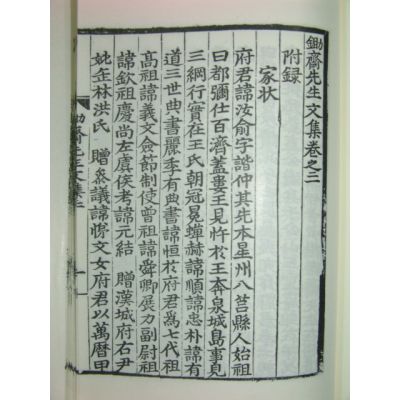 鋤齋先生文集卷之三
附録
家状
府君諱汝俞字諧仲其先本星州八莒縣人始祖
曰都彌仕百濟蓋婁王見忤於王奔泉城島事見
三綱行實在王氏朝冠冕蟬赫諱順諱忠朴諱有
道三世典書麗季有典書諱恒於府君為七代祖
高祖諱義文僉節制使曾祖諱舜卿展力副尉祖
諱欽祖慶尚左虞候考諱元結 贈漢城府右尹
妣缶林洪氏 贈叅議諱文女府君以萬曆甲